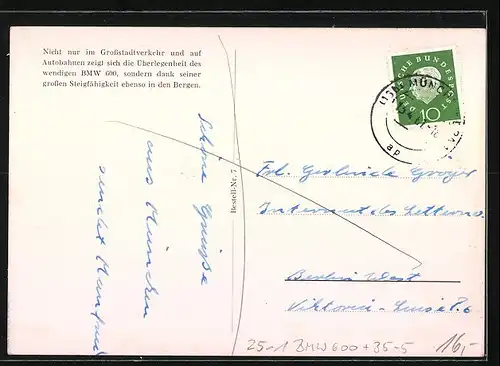 Nicht nur im Großstadtverkehr und auf
Autobahnen zeigt sich die Überlegenheit des
wendigen BMW 600, sondern dank seiner
großen Steigfähigkeit ebenso in den Bergen.
DEUTSCHE BUNDESPOST
10
MÜNCHEN
ap
Schöne Grüsse
aus München
sendet Manfred
Bestell-Nr. 7
Frl. Gerlinde
Internat des Lette
Berlin West
Viktoria-Luise Pl. 6
25-1 BMW 600 + 35-5
16,-